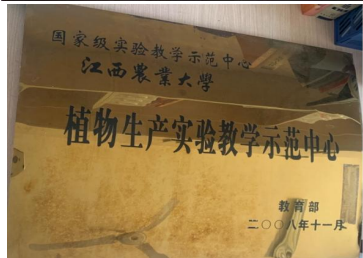 国家级实验教学示范中心
江西農業大學
植物生产实验教学示范中心
教育部
二〇〇八年十一月